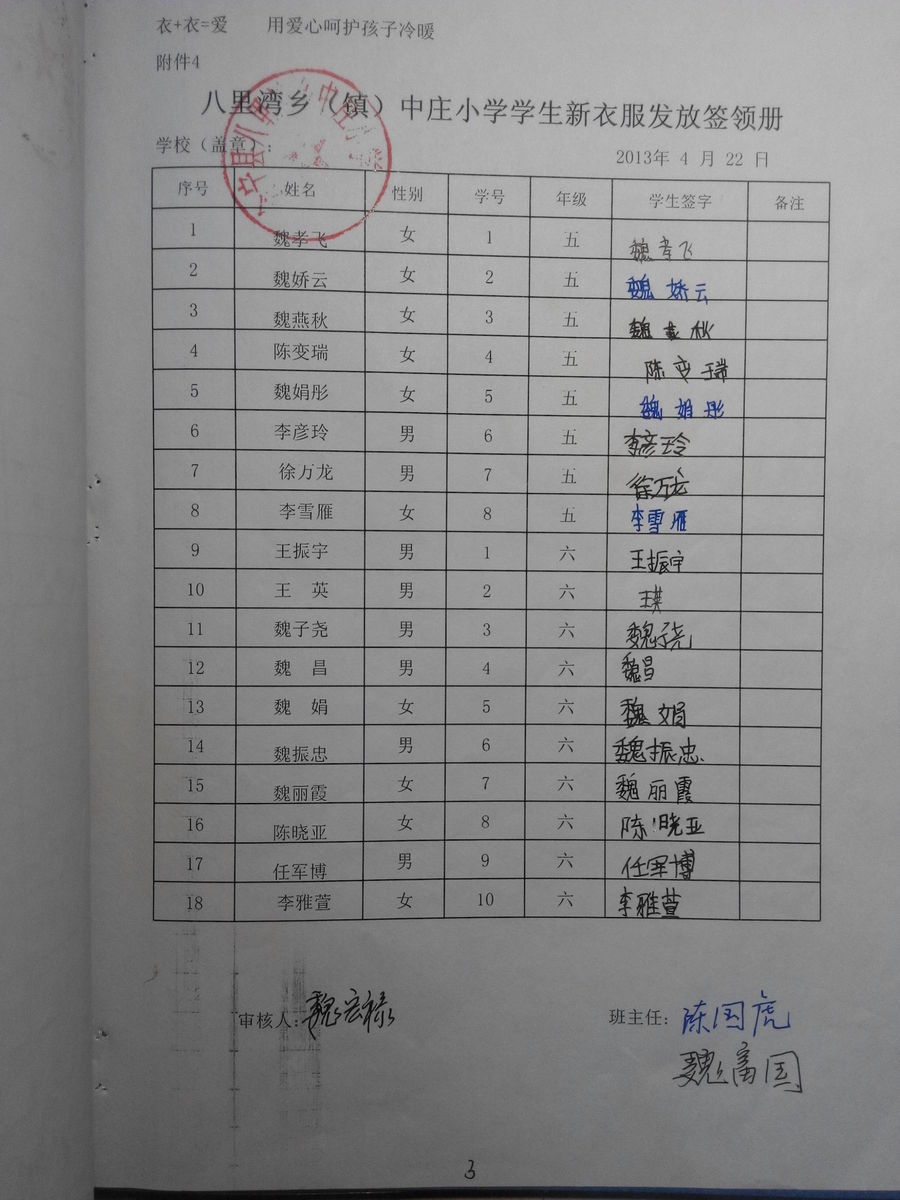 衣+衣=爱 用爱心呵护孩子冷暖
附件4
八里湾乡（镇）中庄小学学生新衣服发放签领册
学校（盖章）：
2013年 4 月 22 日
序号 姓名 性别 学号 年级 学生签字 备注
1 魏孝飞 女 1 五 魏孝飞
2 魏娇云 女 2 五 魏娇云
3 魏燕秋 女 3 五 魏燕秋
4 陈变瑞 女 4 五 陈变瑞
5 魏娟彤 女 5 五 魏娟彤
6 李彦玲 男 6 五 李彦玲
7 徐万龙 男 7 五 徐万龙
8 李雪雁 女 8 五 李雪雁
9 王振宇 男 1 六 王振宇
10 王 英 男 2 六 王英
11 魏子尧 男 3 六 魏子尧
12 魏 昌 男 4 六 魏昌
13 魏 娟 女 5 六 魏娟
14 魏振忠 男 6 六 魏振忠
15 魏丽霞 女 7 六 魏丽霞
16 陈晓亚 女 8 六 陈晓亚
17 任军博 男 9 六 任军博
18 李雅萱 女 10 六 李雅萱
审核人：魏宏禄 班主任：陈国虎
魏富国
3